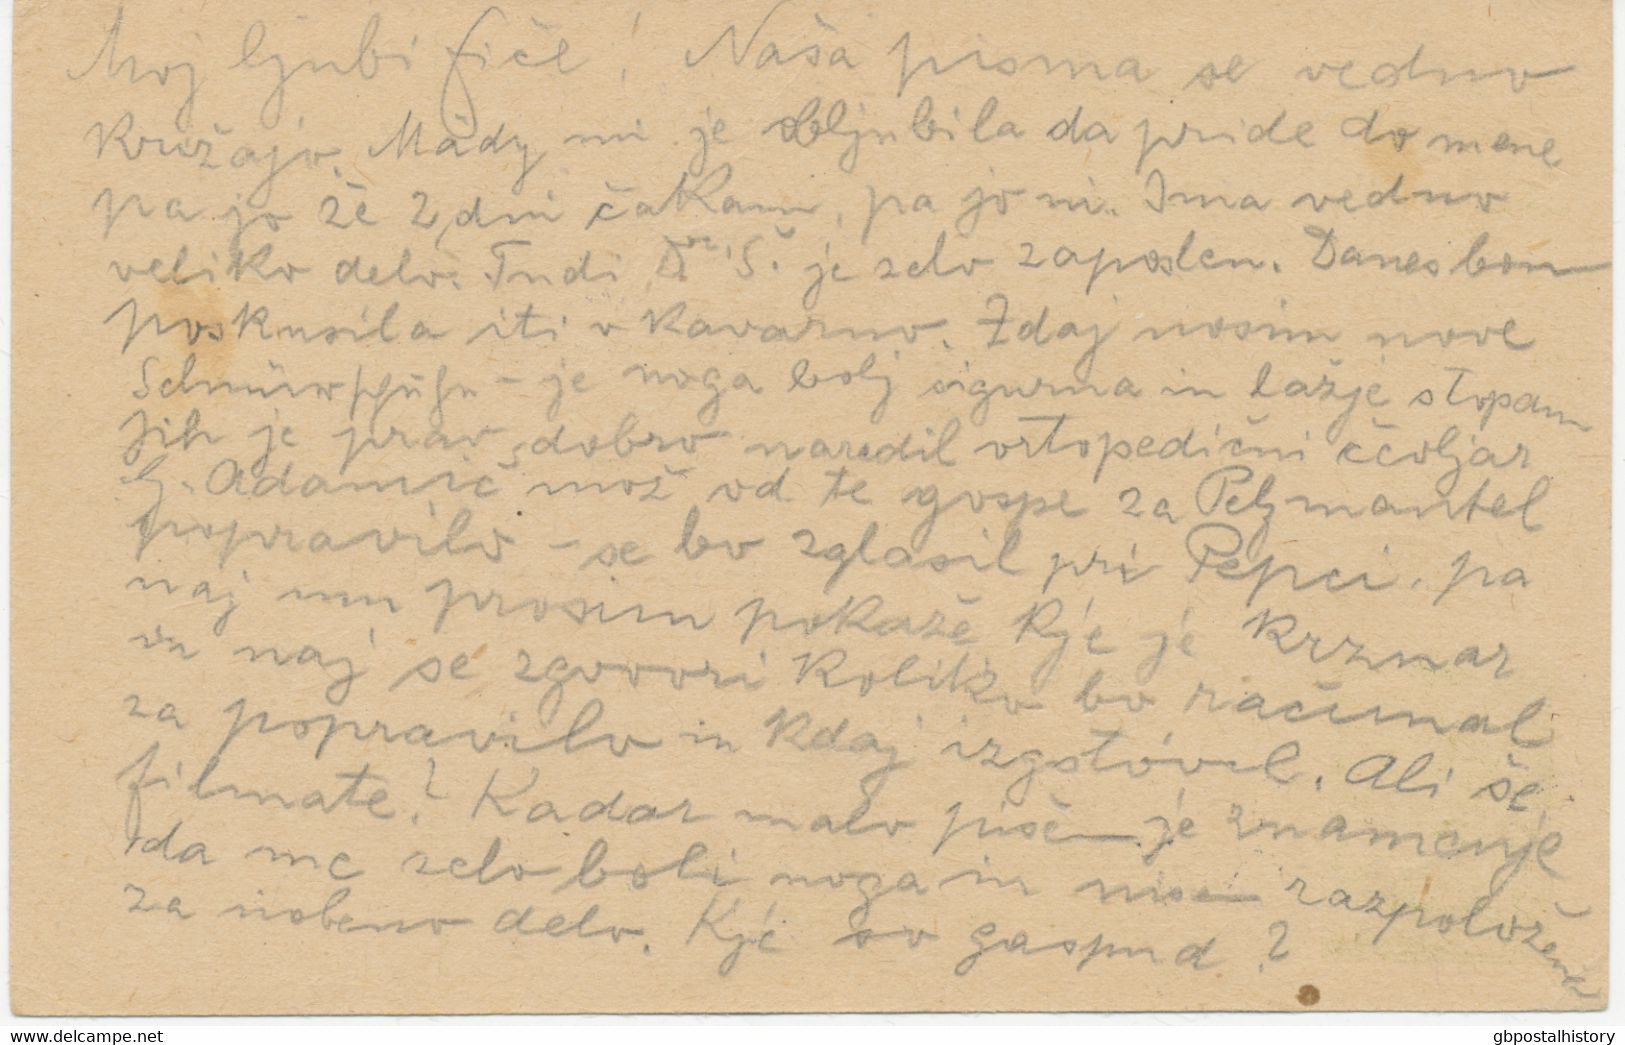 Moj ljubi fiče! Naša pisma se vedno
križajo. Mädy mi je obljubila da pride do mene
pa jo že 2 dni čakam, pa jo ni. Ima vedno
veliko delo. Tudi Dr. Š. je zelo zaposlen. Danes bom
poskusila iti v Kavarno. Zdaj nosim nove
Schnürschuhe - je noga bolj sigurna in lažje stopam
jih je prav dobro naredil ortopedični ččoljar
G. Adamič mož od te gospe za Pelzmantel
popravilo - se bo zglasil pri Pepci, pa
naj mu prosim pokaže Kje je Krznar
in naj se zgovori Koliko bo računal
za popravilo in Kdaj izgotovil. Ali še
filmate? Kadar malo pišem je znamenje
da me zelo boli noga in nisem razpoložena
za nobeno delo. Kje so gaspud?
www.delcampe.net
gbpostalhistory